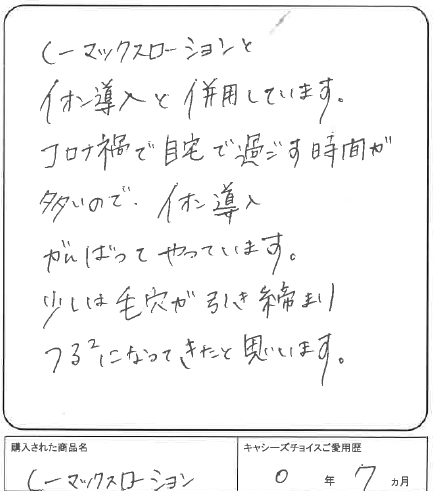 Cーマックスローションと
イオン導入と併用しています。
コロナ禍で自宅で過ごす時間が
多いので、イオン導入
がんばってやっています。
少しは毛穴が引き締まり
つる²になってきたと思います。
購入された商品名
Cーマックスローション
キャシーズチョイスご愛用歴
0年7ヵ月